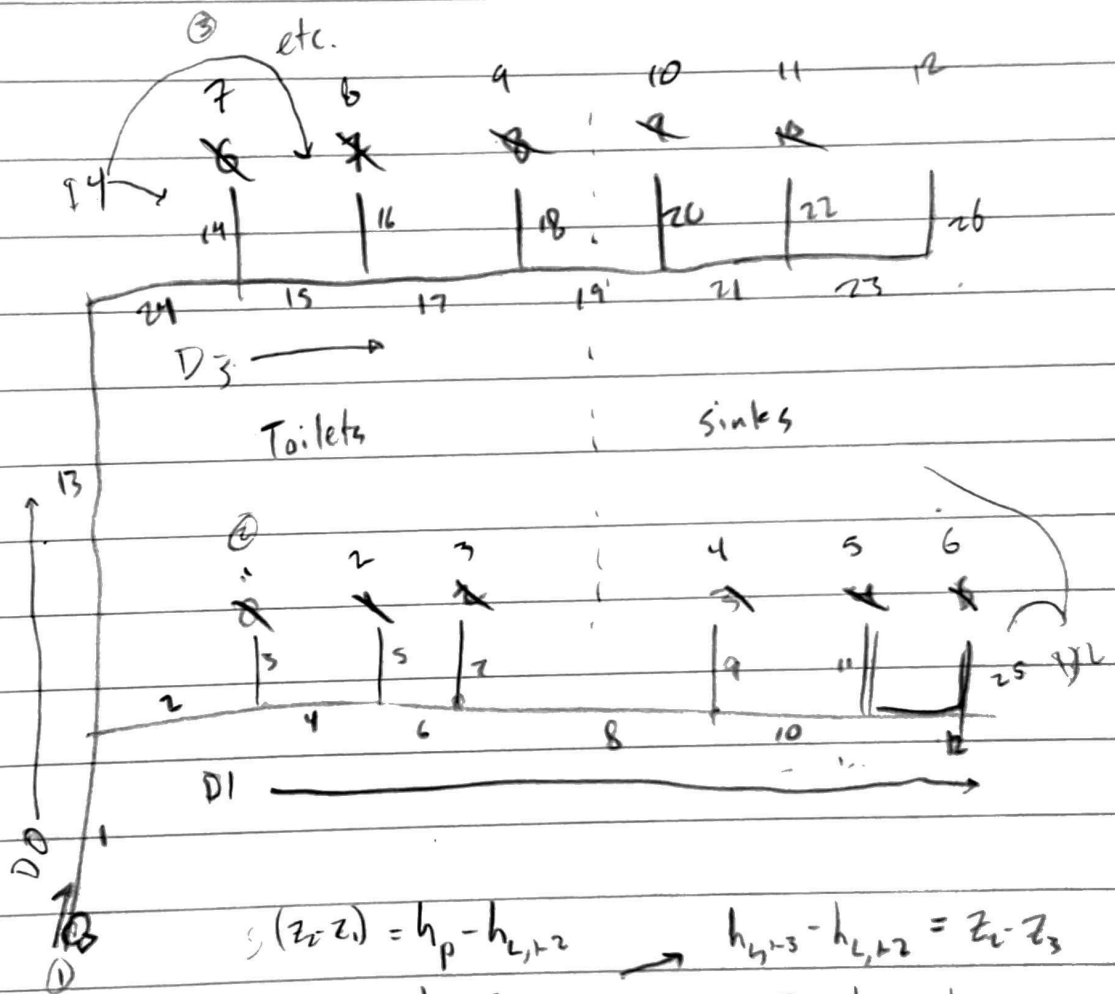 ③ etc.
7 8 9 10 11 12
14 16 18 20 22 26
24 15 17 19 21 23
D3
Toilets sinks
13
②
2 3 4 5 6
3 5 7 9 11 25
2 4 6 8 10 12
D1
D0
1
①
(z₂-z₁) = hₚ - h_L,1-2
h_L,1-3 - h_L,1-2 = z₂-z₃